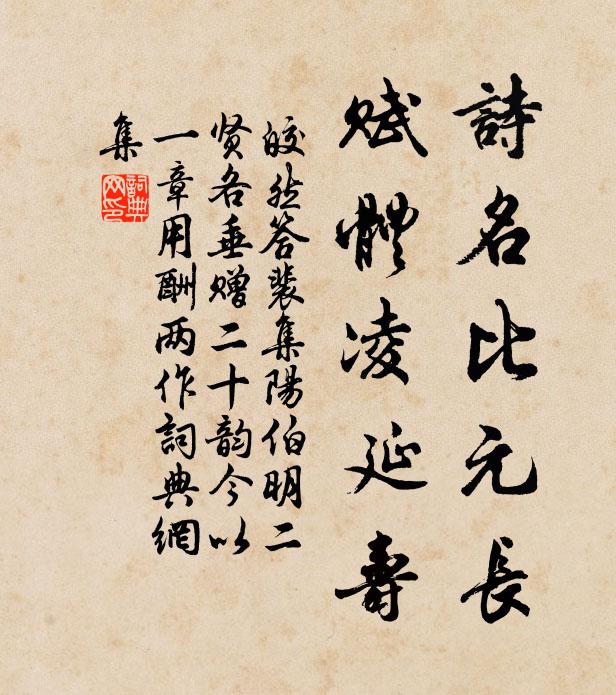 詩名比元長
赋體凌延壽
皎然答裴集陽伯明二
贤各垂赠二十韵今以
一章用酬两作詞典網
集
詞典
网印